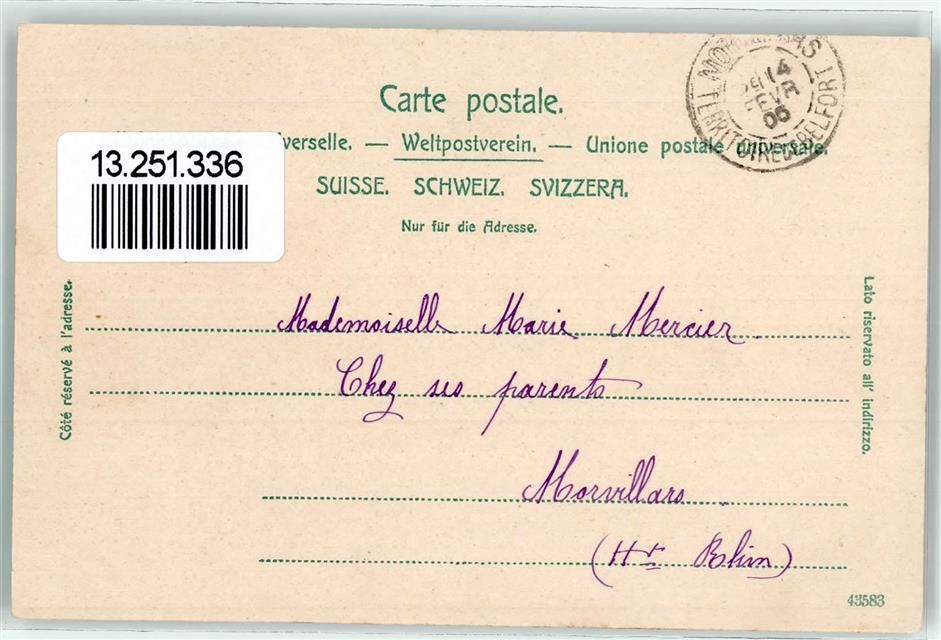 Carte postale.
verselle. — Weltpostverein. — Unione postale universale.
SUISSE. SCHWEIZ. SVIZZERA.
Nur für die Adresse.
13.251.336
MORVILLARS
14
FEVR
06
TERRITOIRE DE BELFORT
Côté réservé à l'adresse.
Lato riservato all' indirizzo.
Mademoiselle Marie Mercier
Chez ses parents
Morvillars
(Ht Rhin)
43583